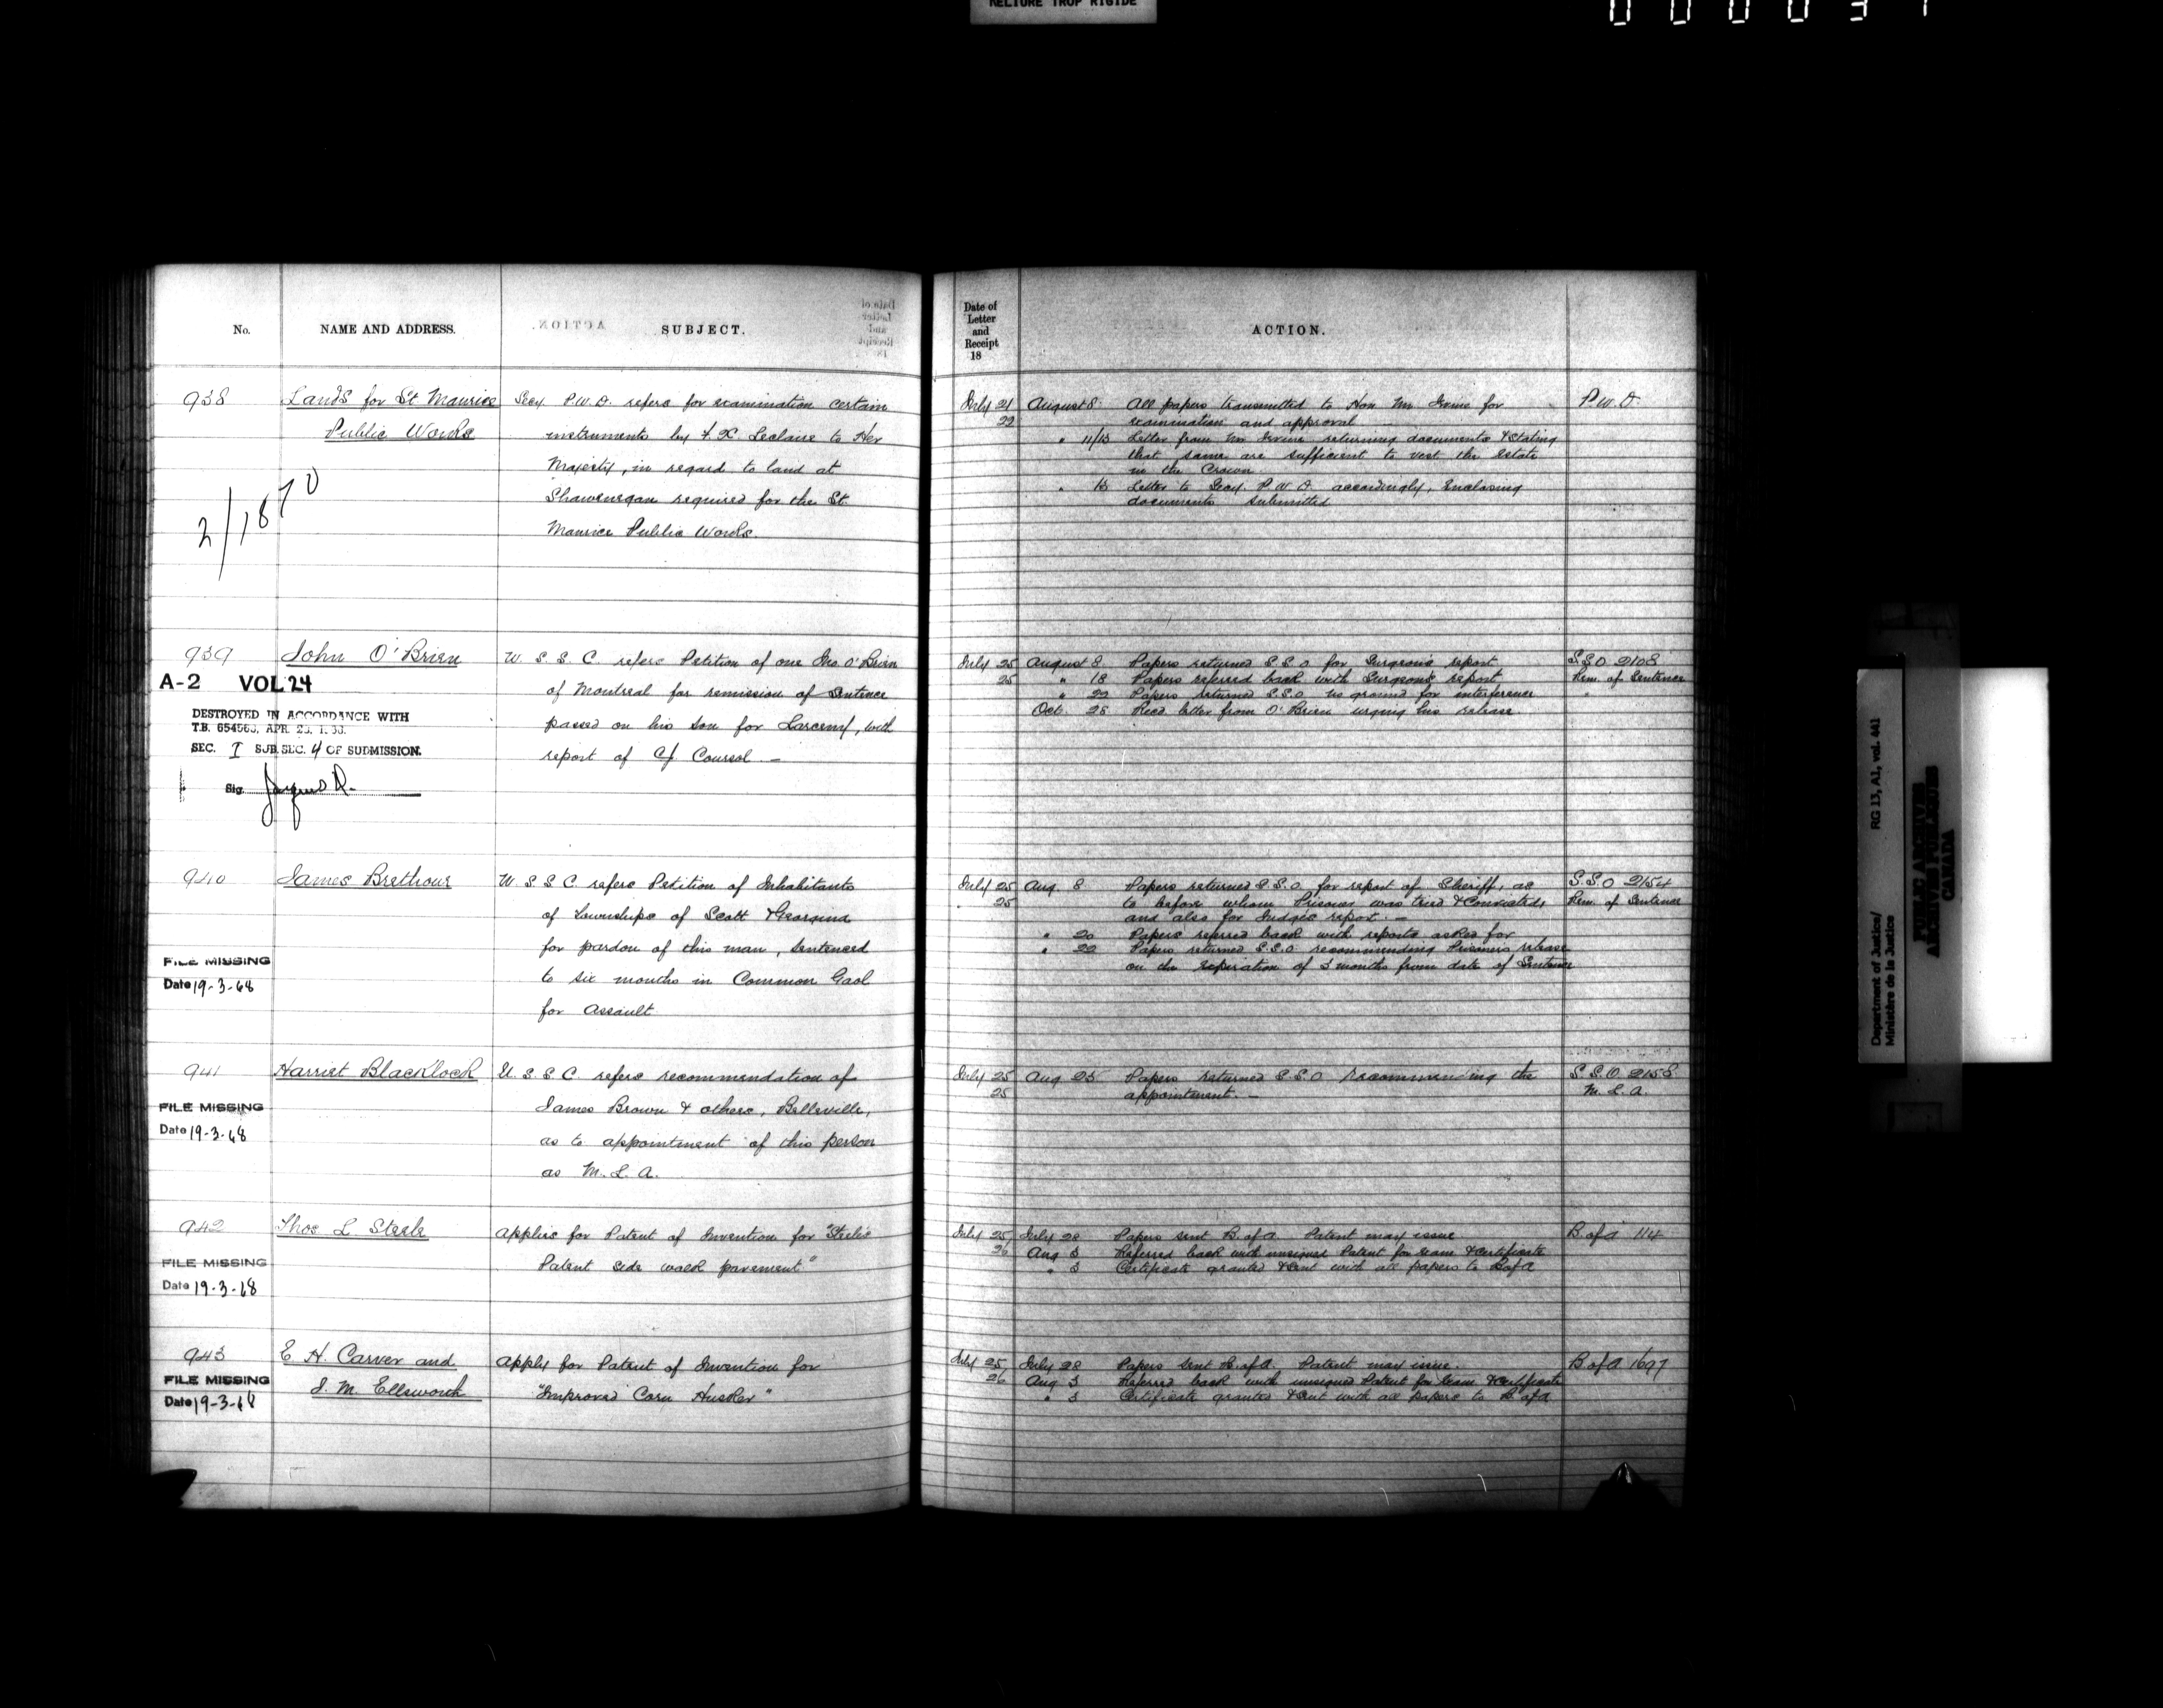 RELIURE TROP RIGIDE
No.
NAME AND ADDRESS.
SUBJECT.
938
Lands for St Maurice
Public Works
2/1870
Secy P.W.D. refers for examination certain
instruments by F. X. Leclaire to Her
Majesty, in regard to land at
Shawenegan required for the St.
Maurice Public Works.
939
John O'Brien
A-2 VOL 24
DESTROYED IN ACCORDANCE WITH
SEC. I SUB.SEC. 4 OF SUBMISSION.
Sig.
U. S. S. C. refers Petition of one Jno O'Brien
of Montreal for remission of Sentence
passed on his son for Larceny, with
report of C.J. Coursol. —
940
James Brethour
FILE MISSING
Date 19-3-68
U S S C. refers Petition of Inhabitants
of Townships of Scott & Georgina
for pardon of this man, sentenced
to six months in Common Gaol
for Assault
941
Harriet Blacklock
FILE MISSING
Date 19-3-68
U. S. S. C. refers recommendation of
James Brown & others, Belleville,
as to appointment of this person
as M. L. A.
942
Thos L. Steele
FILE MISSING
Date 19-3-68
Applies for Patent of Invention for "Steele's
Patent side walk pavement"
943
E. H. Carver and
J. M. Ellsworth
FILE MISSING
Date 19-3-68
Apply for Patent of Invention for
"Improved Corn Husker"
Date of
Letter
and
Receipt
18
ACTION.
July 21
22
August 8. All papers transmitted to Hon Mr Irvine for
examination and approval
" 11/13 Letter from Mr Irvine returning documents & stating
that same are sufficient to vest the Estate
in the Crown.
" 13 Letter to Secy. P.W.D. accordingly, Enclosing
documents submitted
P.W.D.
July 25
25
August 8. Papers returned S.S.O. for Surgeon's report
" 18 Papers referred back with Surgeon's report
" 22 Papers returned S.S.O. no ground for interference
Oct. 28 Recd. letter from O'Brien urging his release
S.S.O 2108
Rem. of Sentence
July 25
25
Aug. 8 Papers returned S.S.O. for report of Sheriff, as
to before whom Prisoner was tried & Convicted,
and also for Judges report. —
" 20 Papers referred back with reports asked for
" 22 Papers returned S.S.O. recommending Prisoners release
on the expiration of 3 months from date of Sentence
S.S.O 2154
Rem. of Sentence
July 25
25
Aug 25 Papers returned S.S.O recommending the
appointment. —
S.S.O. 2158
M. L. A.
July 25,
26
July 28 Papers sent B. of A. Patent may issue
Aug 3 Referred back with unsigned Patent for exam & certificate
" 3 Certificate granted & sent with all papers to B of A
B. of A 114
July 25,
26
July 28 Papers sent B. of A. Patent may issue.
Aug 3 Referred back with unsigned Patent for exam & certificate
" 3 Certificate granted & sent with all papers to B of A
B of A 1697
Department of Justice/
Ministère de la Justice
RG 13, A1, vol. 441
PUBLIC ARCHIVES
ARCHIVES PUBLIQUES
CANADA